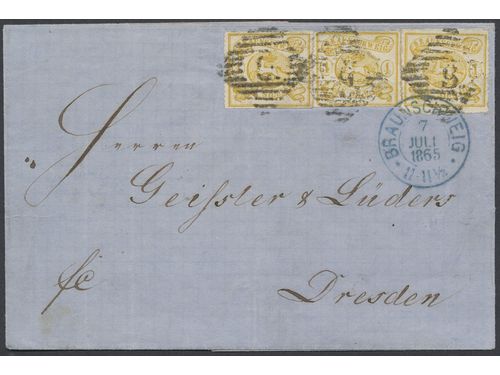 BRAUNSCHWEIG
7
JULI
1865
8
Herren
Geissler & Lüders
Dresden